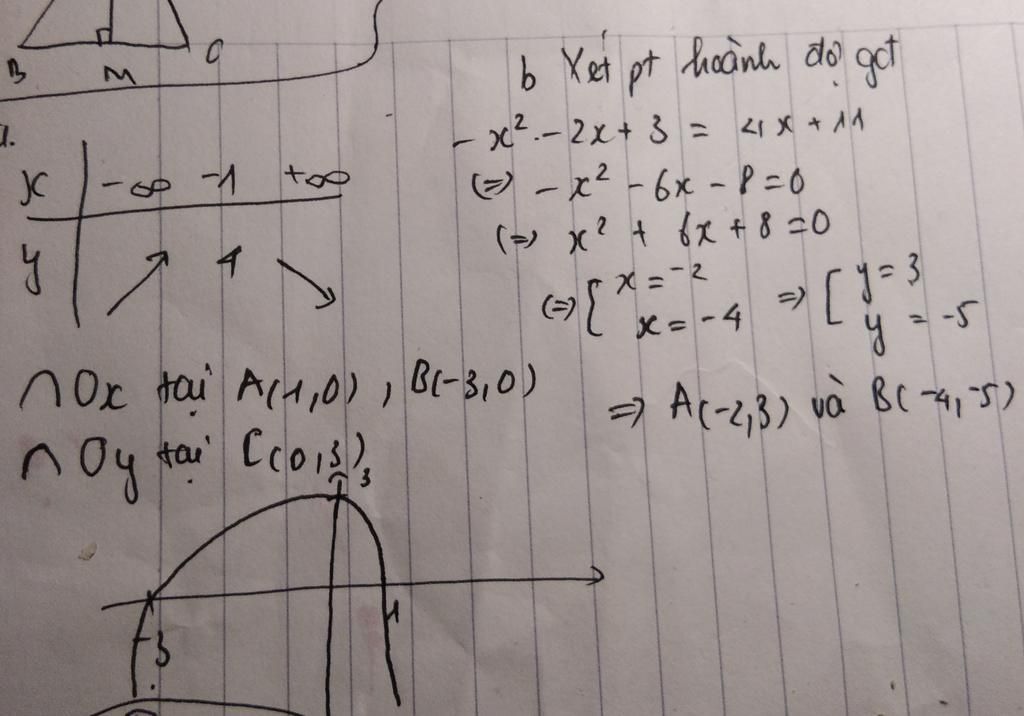 B M C
1.
x -∞ -1 +∞
y ↗ 4 ↘
∩ Ox tại A(1,0), B(-3,0)
∩ Oy tại C(0,3)
3
-3
1
b Xét pt hoành độ gđ
-x² - 2x + 3 = 4x + 11
(=>) -x² - 6x - 8 = 0
(=>) x² + 6x + 8 = 0
(=>) { x = -2 => [ y = 3
x = -4 y = -5
=> A(-2,3) và B(-4,-5)